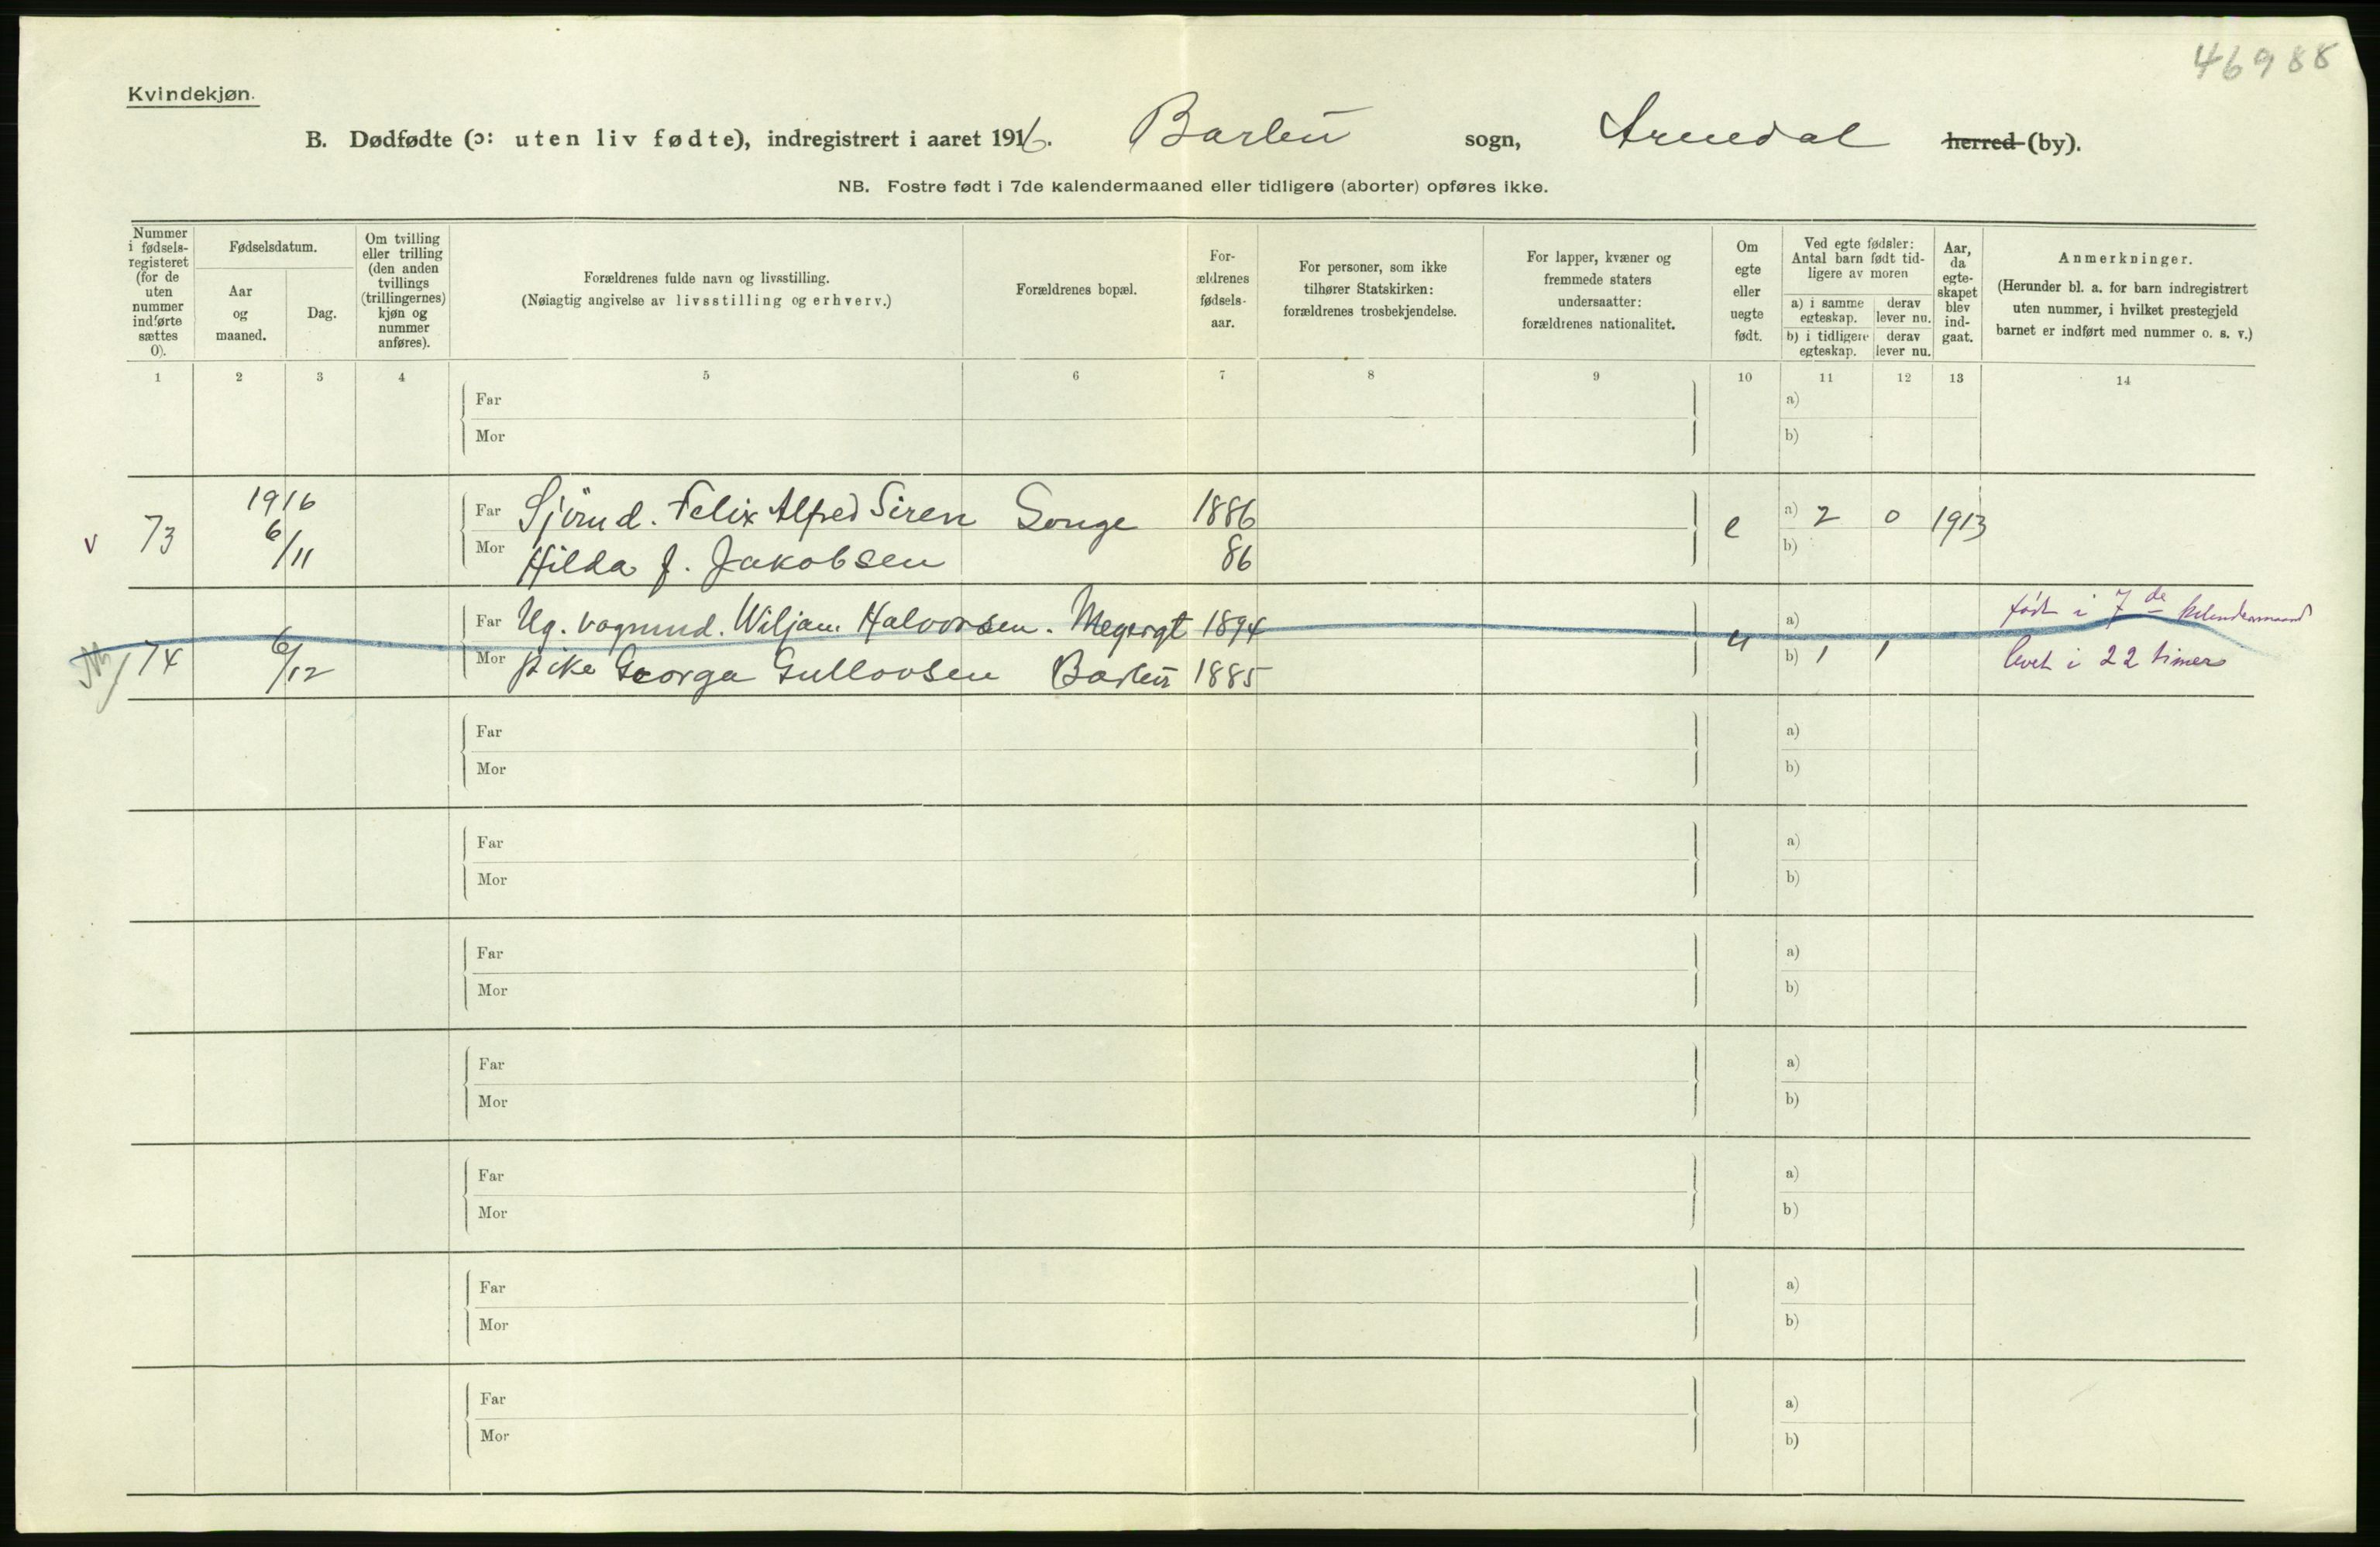 46988
Kvindekjøn.
B. Dødfødte (ɔ: uten liv fødte), indregistrert i aaret 1916. Barbu sogn, Arendal herred (by).
NB. Fostre født i 7de kalendermaaned eller tidligere (aborter) opføres ikke.
Nummer i fødsels-registeret (for de uten nummer indførte sættes 0).
Fødselsdatum.
Aar og maaned.
Dag.
Om tvilling eller trilling (den anden tvillings (trillingernes) kjøn og nummer anføres).
Forældrenes fulde navn og livsstilling.
(Nøiagtig angivelse av livsstilling og erhverv.)
Forældrenes bopæl.
For-ældrenes fødsels-aar.
For personer, som ikke tilhører Statskirken: forældrenes trosbekjendelse.
For lapper, kvæner og fremmede staters undersaatter: forældrenes nationalitet.
Om egte eller uegte født.
Ved egte fødsler: Antal barn født tid-ligere av moren
a) i samme egteskap.
derav lever nu.
b) i tidligere egteskap.
derav lever nu.
Aar, da egte-skapet blev ind-gaat.
Anmerkninger.
(Herunder bl. a. for barn indregistrert uten nummer, i hvilket prestegjeld barnet er indført med nummer o. s. v.)
1 2 3 4 5 6 7 8 9 10 11 12 13 14
Far a)
Mor b)
1916
v 73 6/11 Far Sjömd. Felix Alfred Siren Songe 1886 e a) 2 0 1913
Mor Hilda J. Jakobsen 86 b)
74 6/12 Far Ug. vognmd. Wiljam Halvorsen. 1894 u a) født i 7de kalendermaaned
Mor pike Georga Gullovsen Barbu 1885 b) 1 1 levet i 22 timer
Far a)
Mor b)
Far a)
Mor b)
Far a)
Mor b)
Far a)
Mor b)
Far a)
Mor b)
Far a)
Mor b)
Far a)
Mor b)